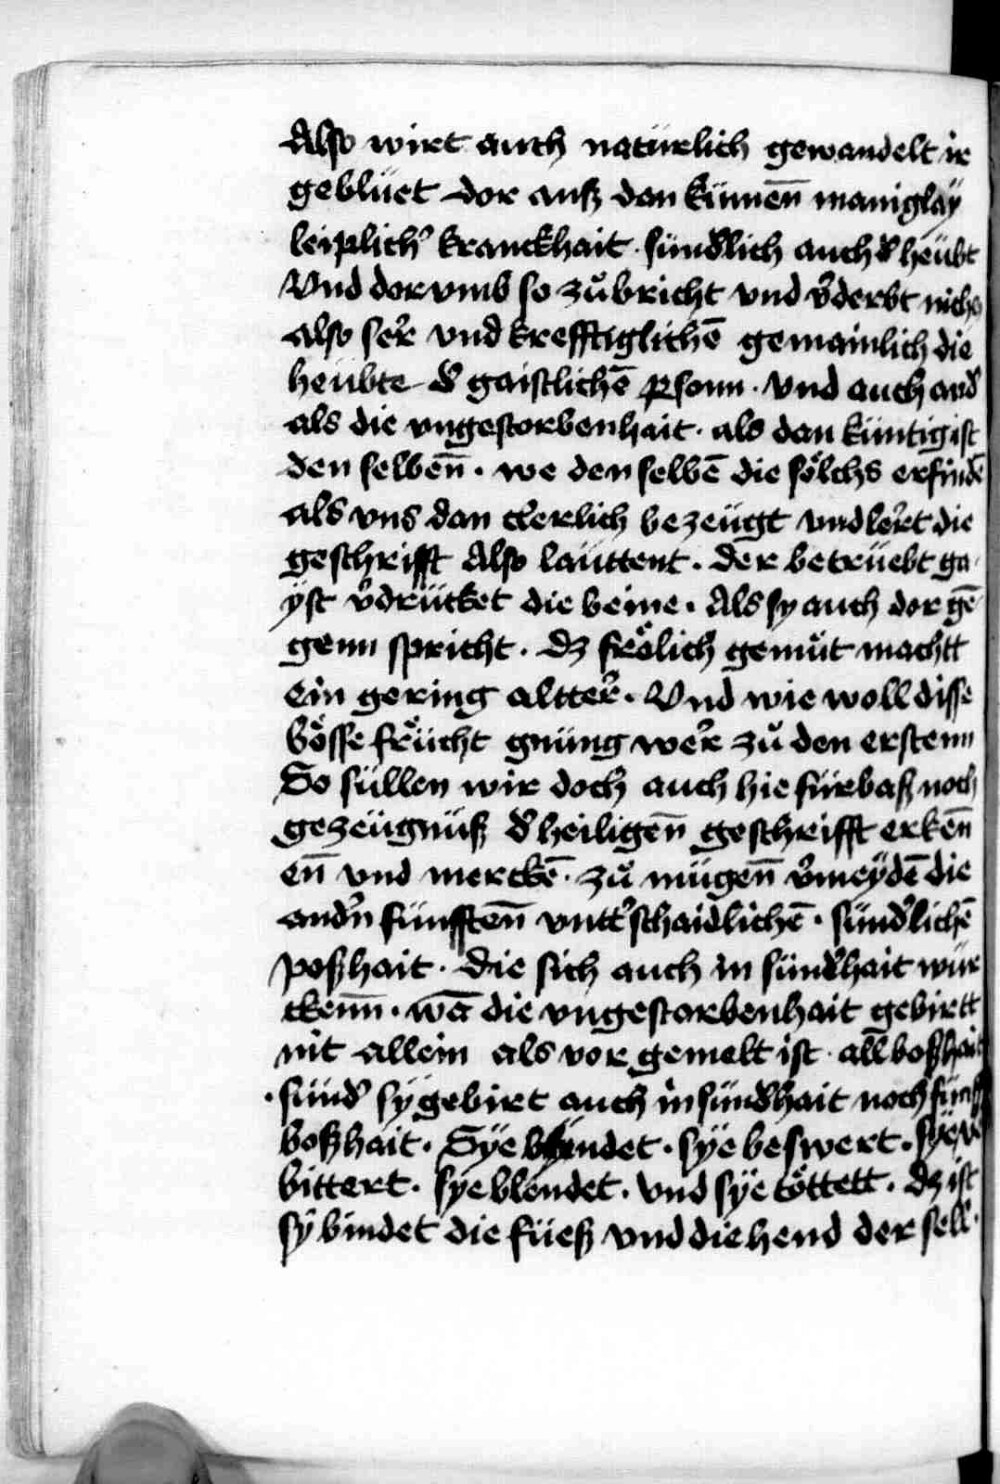 Also wirt auch natürlich gewandelt ir
geblüet dor auß dan kümen̄ maniglay
leiplich᷑ kranckhait · sünd᷑lich auch d᷑ heübt
Vnd dor vmb so zůbricht vnd v᷑derbt nichs
also ser᷑ vnd krefftiglichē gemainlich die
heübte d᷑ gaistlichē ꝑsonn · Vnd auch and᷑
als die vngestorbenhait · als dan küntig ist
den selben̄ · we den selbē die sölchs erfindē
als vns dan clerlich bezeügt vnd lert die
geschrifft Also laüttent · Der betrüebt ga
yst v᷑drücket die beine · Als sy auch dor gē
genn spricht · dz frölich gemüt machtt
ein gering altter᷑ · Vnd wie woll disse
bösse frücht gnüng wer᷑ zů den erstenn
So süllen wir doch auch hie fürbaß noch
gezeügnüß d᷑ heiligen̄ geschrifft erken̄
en̄ vnd merckē · zů mügen̄ v᷑meydē die
and᷑n fünfften̄ vntt᷑schaidlichē · sünd᷑lichē
poßhait · Die sich auch in sünd᷑hait wür
ckenn̄ · wā die vngestorbenhait gebirtt
nit allein als vor gemelt ist · all boßhait
· sünd᷑ sy gebirt auch in sünd᷑hait noch fünff
boßhait · Sye bindet · sye beswert · sye v᷑
bittert · sye blendet · vnd sye töttett · dz ist
sy bindet die füeß vnd die hend der sell ·